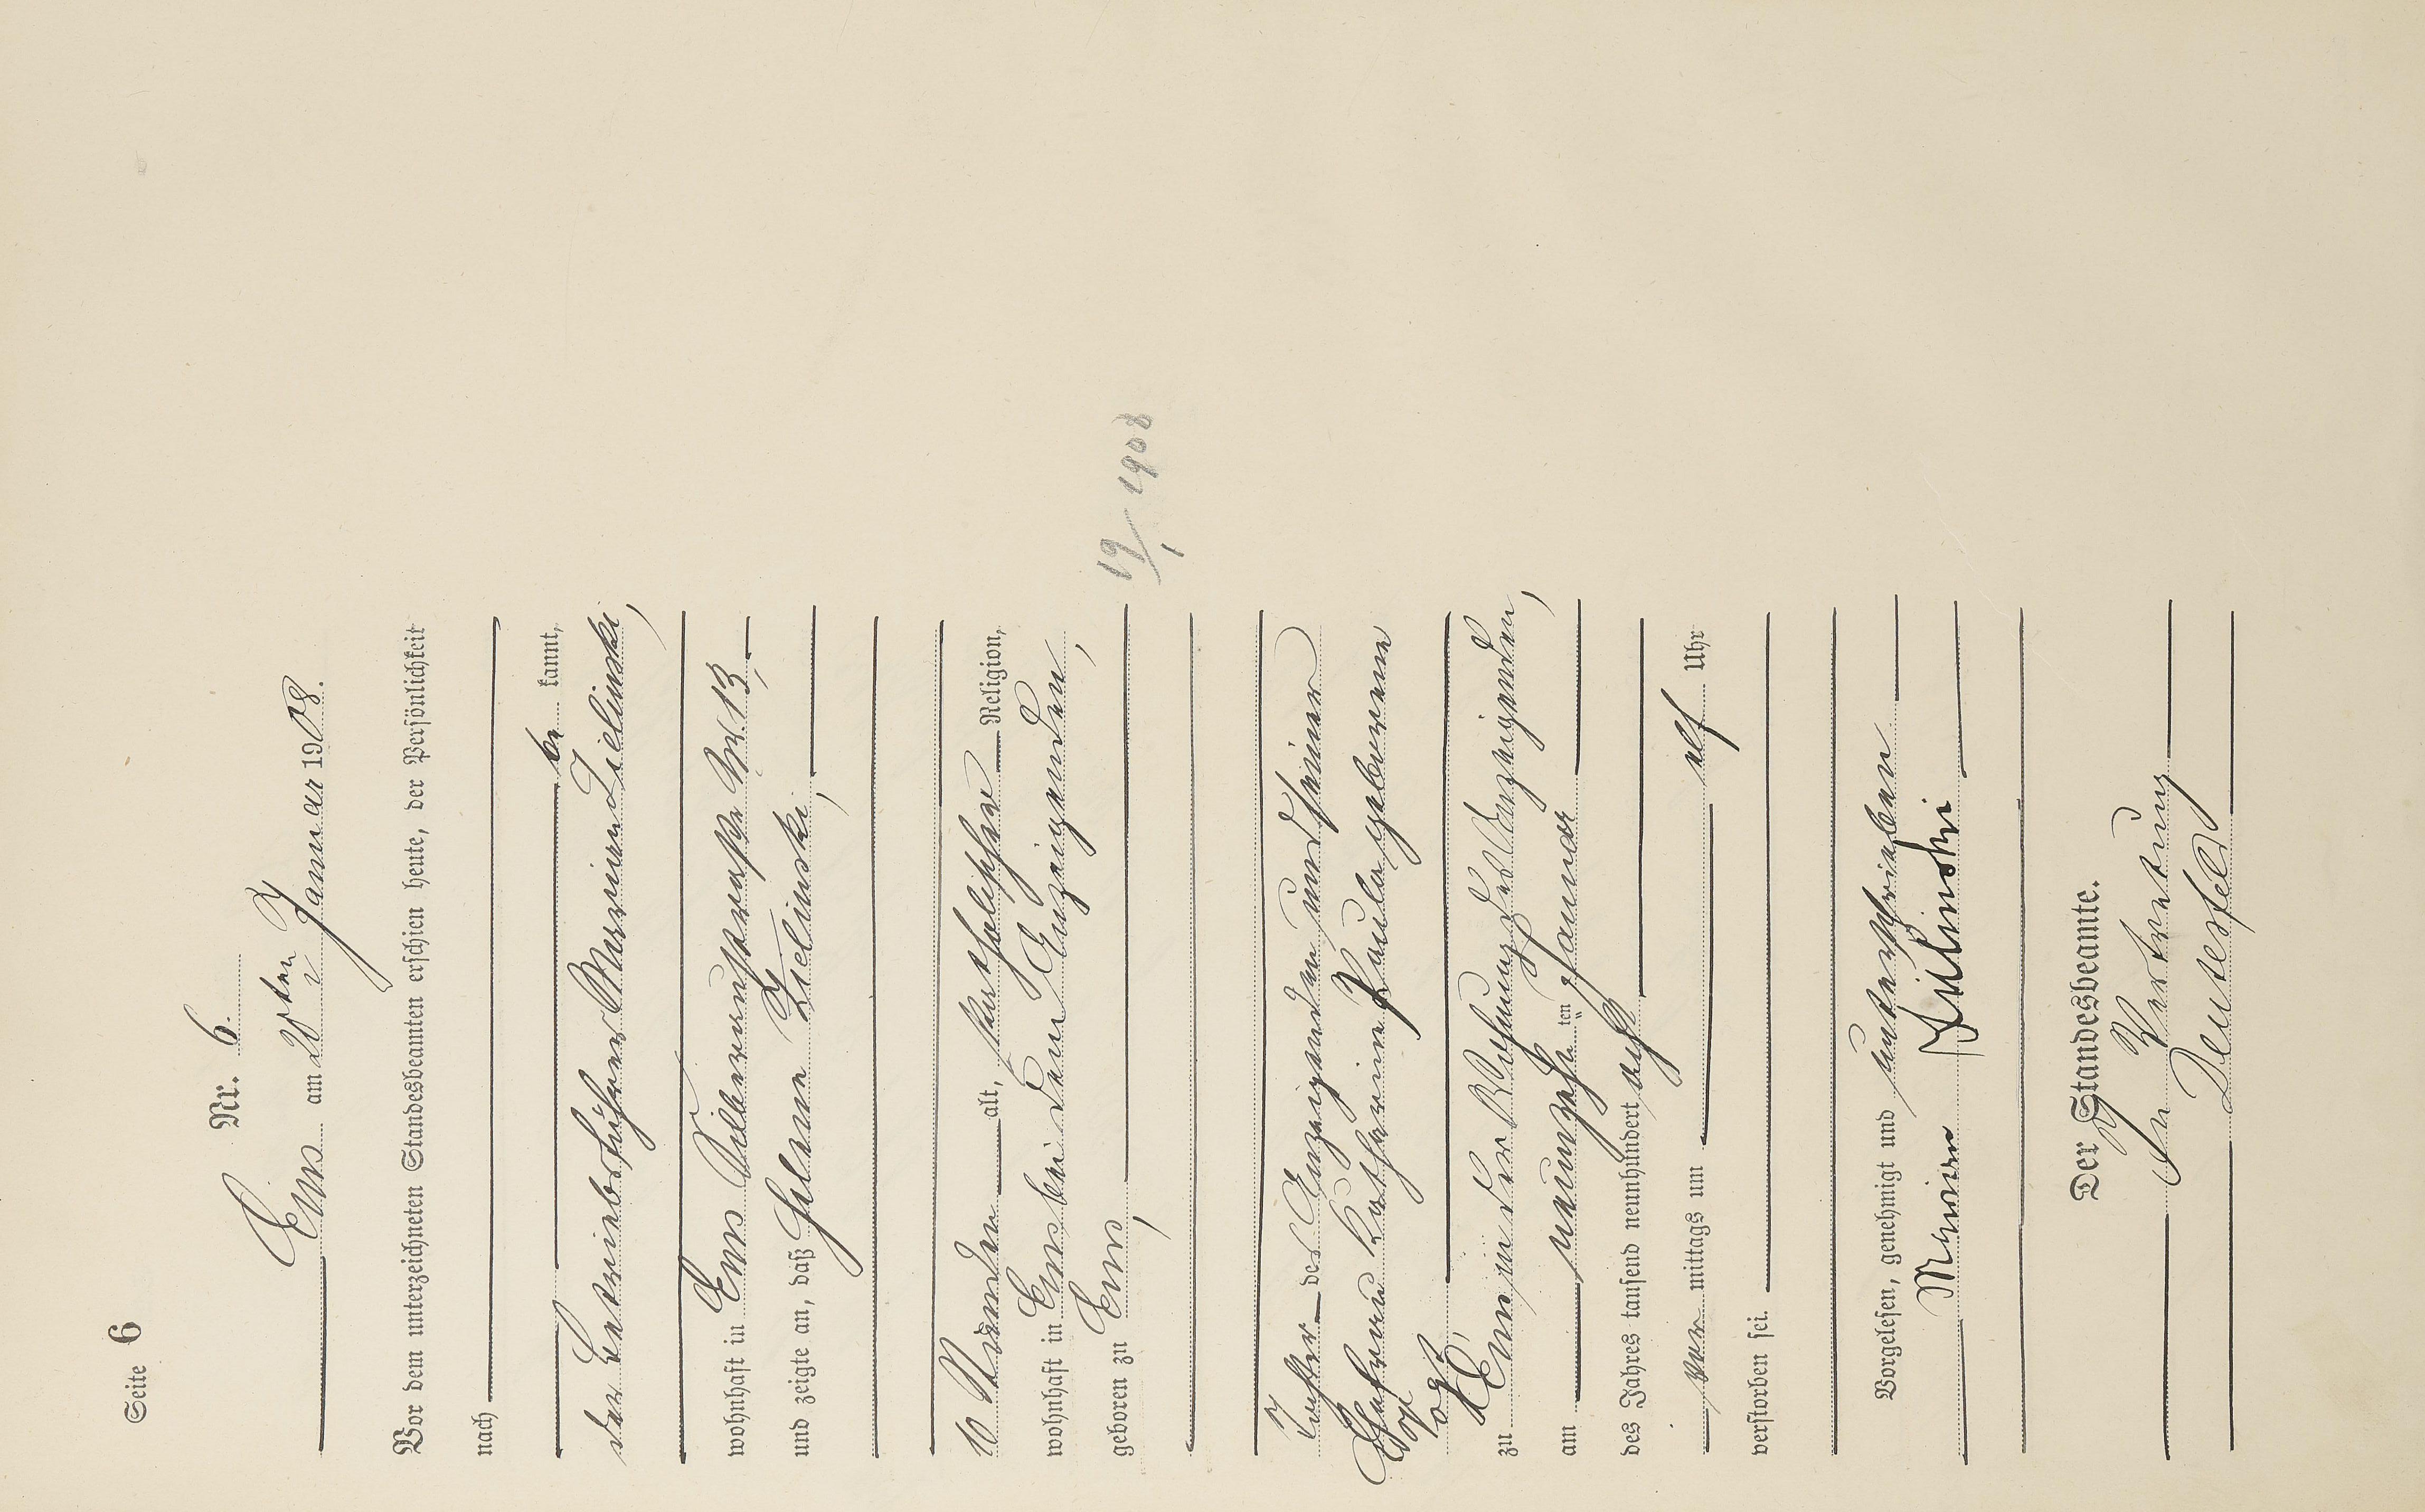 Seite 6
Nr. 6.
Ems am 20ten Januar 1908.
Vor dem unterzeichneten Standesbeamten erschien heute, der Persönlichkeit
nach
be kannt,
der Betriebsführer Marian Zielinski,
wohnhaft in Ems Silberaustraße Nr. 13,
und zeigte an, daß Helene Zielinski,
10 Stunden alt, katholischer Religion,
wohnhaft in Ems bei dem Anzeigenden,
geboren zu Ems,
19/1 1908
Tochter des Anzeigenden und seiner
Ehefrau Katharina Paula geborenen
Vogt,
zu Ems in der Wohnung des Anzeigenden,
am neunzehn ten Januar
des Jahres tausend neunhundert acht
vor mittags um elf Uhr
verstorben sei.
Vorgelesen, genehmigt und unterschrieben
Marian Zielinski
Der Standesbeamte.
In Vertretung